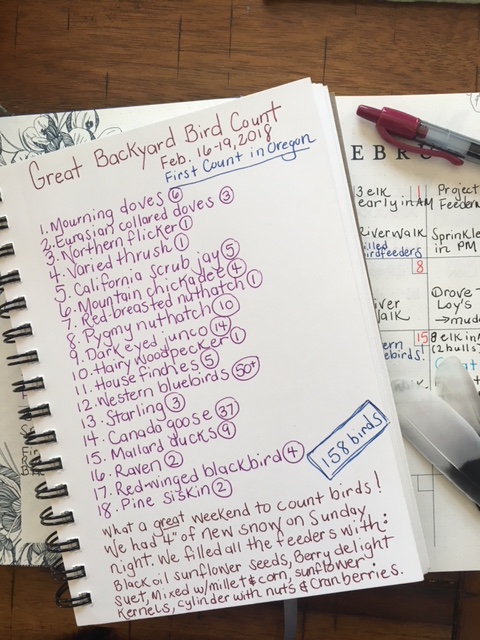 Great Backyard Bird Count
Feb. 16-19, 2018
First Count in Oregon
1. Mourning doves 6
2. Eurasian collared doves 3
3. Northern flicker 1
4. Varied thrush 1
5. California scrub jay 5
6. Mountain chickadee 4
7. Red-breasted nuthatch 1
8. Pygmy nuthatch 10
9. Dark eyed junco 14
10. Hairy Woodpecker 1
11. House finches 5
12. Western bluebirds 50+
13. Starling 3
14. Canada goose 37
15. Mallard ducks 9
16. Raven 2
17. Red-winged blackbird 4
18. Pine siskin 2
158 birds
What a great weekend to count birds!
We had 4" of new snow on Sunday
night. We filled all the feeders with:
Black oil sunflower seeds, Berry delight
suet, Mixed w/millet & corn, sunflower
Kernels, cylinder with nuts & Cranberries.
EBRU
3 elk 1
early in AM
Project
Feeder
Riverwalk
filled
birdfeeders
Sprinkle
in PM
8
iver
alk
Drove
Loy's
→ mud
15
ern
ebirds!
8 elk in
(2 bulls)